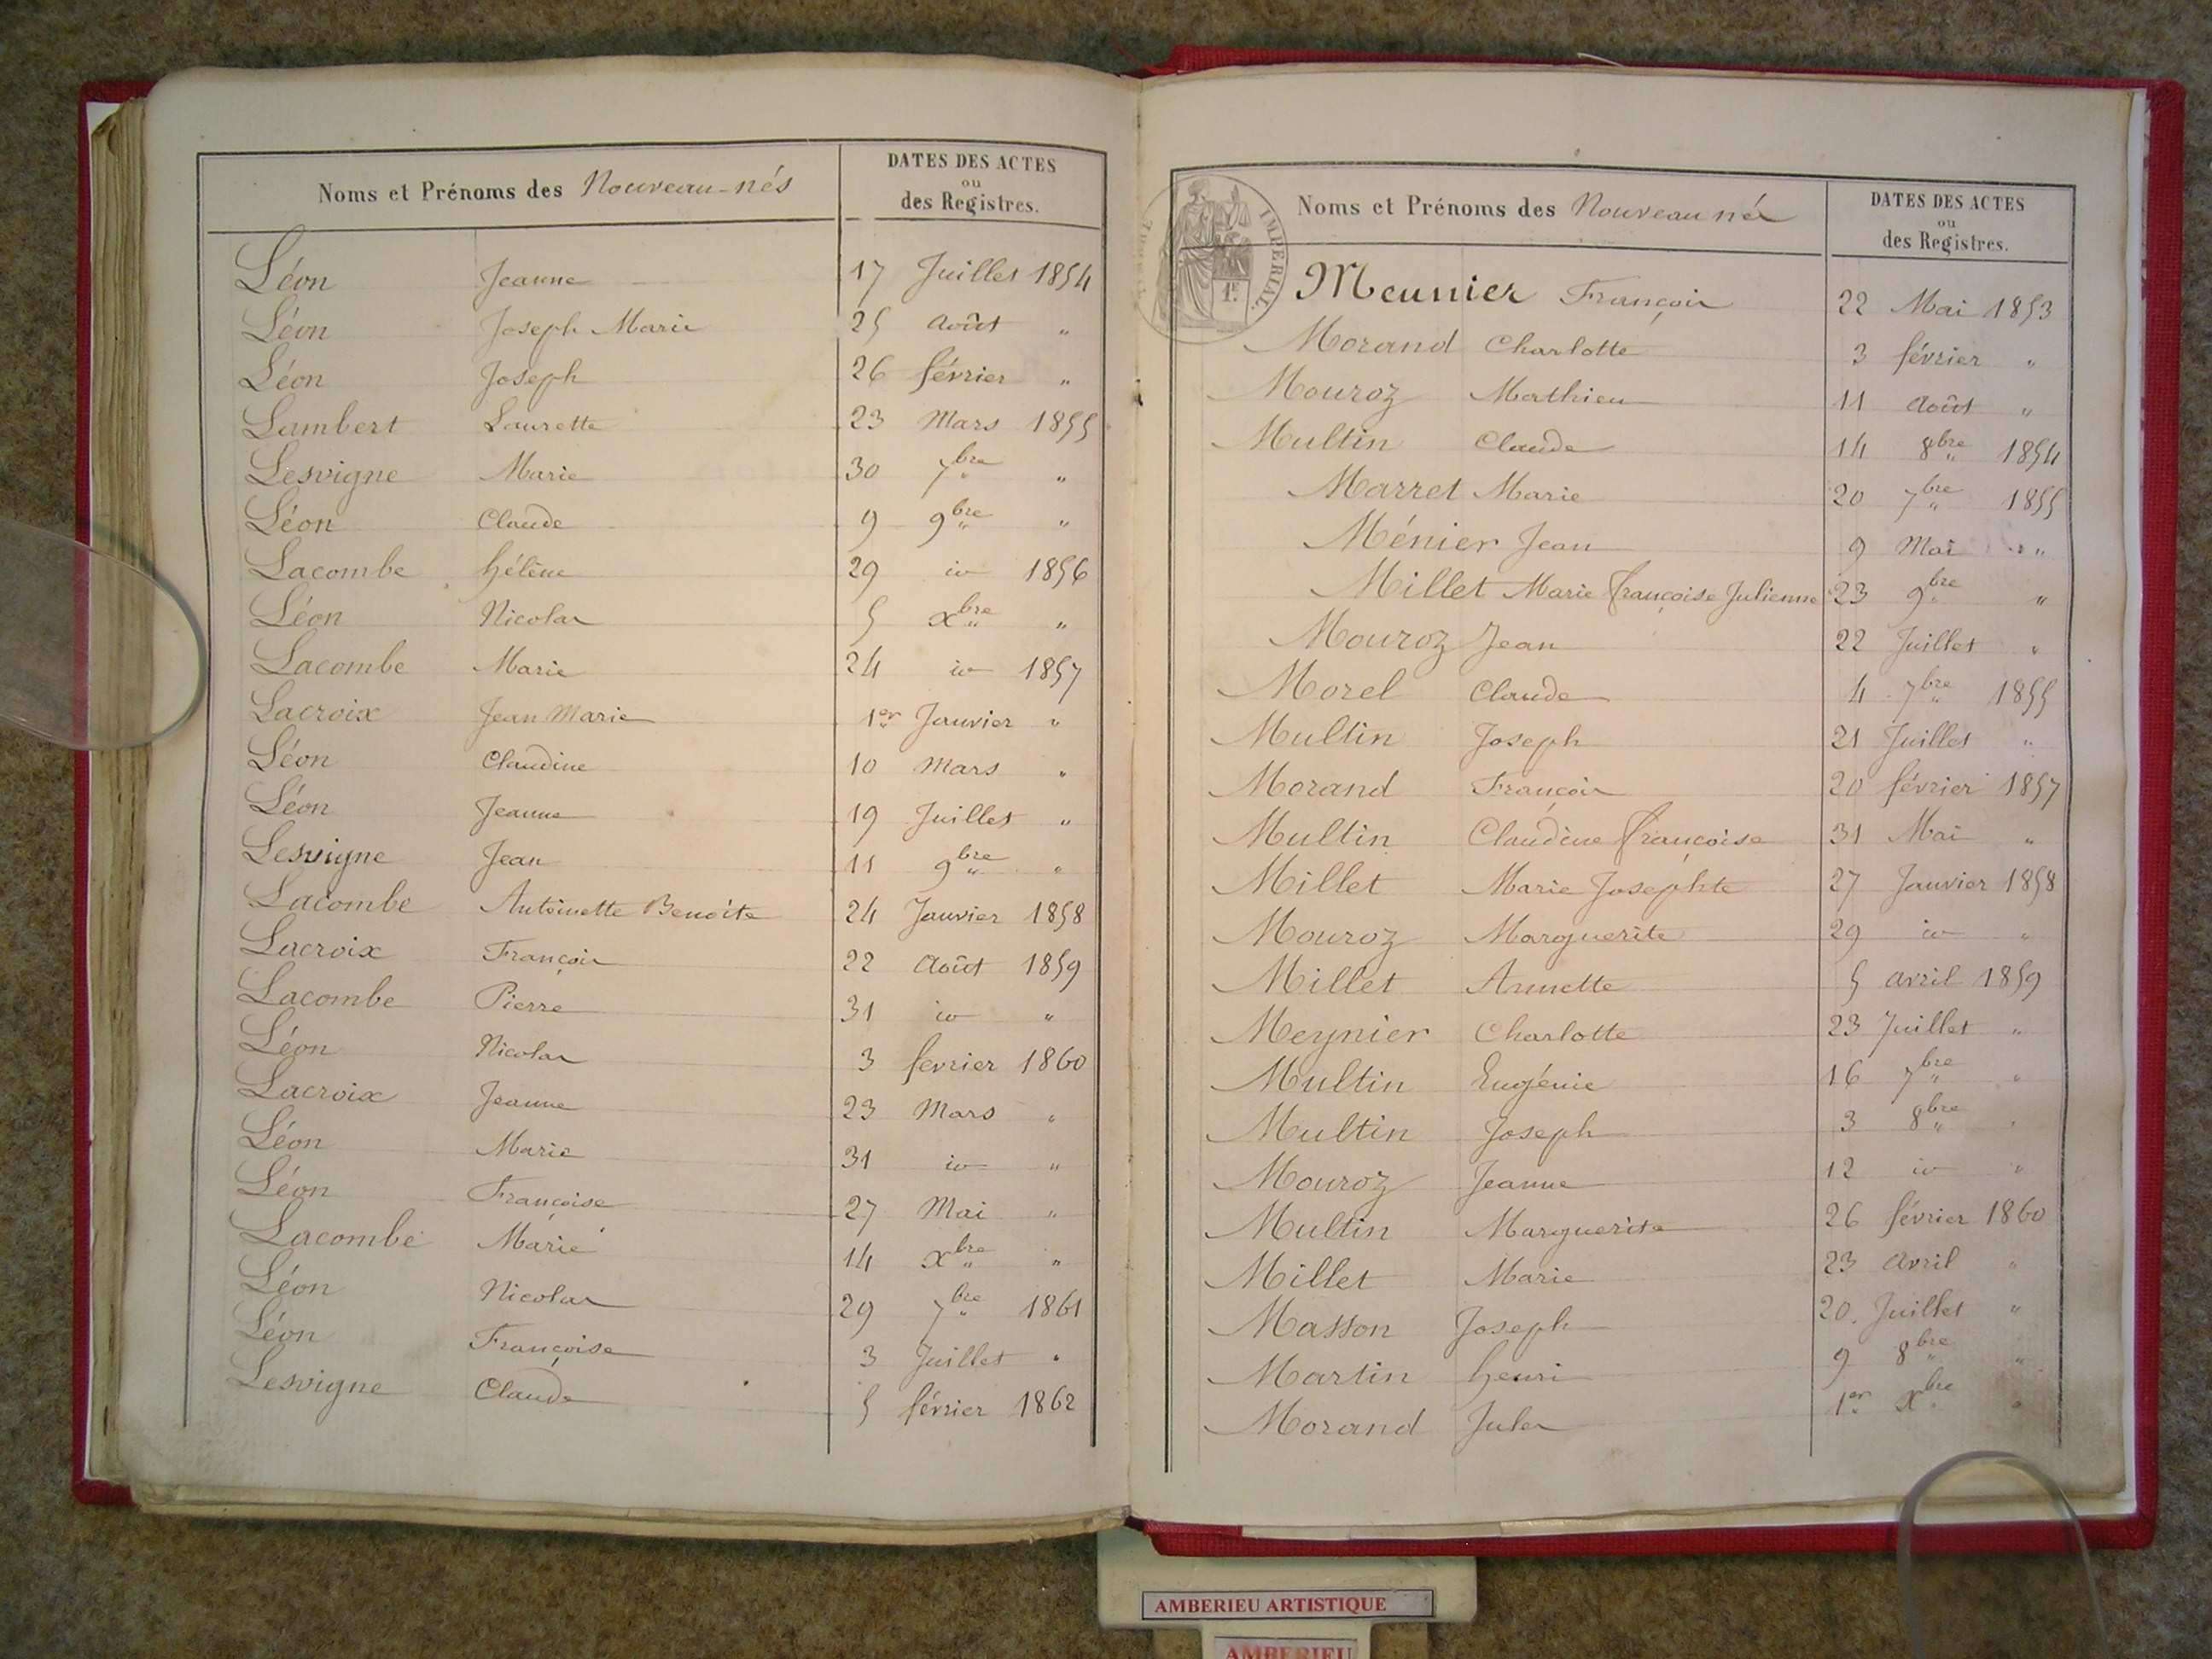 Noms et Prénoms des Nouveau-nés
DATES DES ACTES
ou
des Registres.
Léon Jeanne 17 Juillet 1854
Léon Joseph Marie 25 Août "
Léon Joseph 26 février "
Lambert Laurette 23 Mars 1855
Lesvigne Marie 30 7bre "
Léon Claude 9 9bre "
Lacombe hélène 29 id 1856
Léon Nicolas 5 xbre "
Lacombe Marie 24 id 1857
Lacroix Jean Marie 1er Janvier "
Léon Claudine 10 Mars "
Léon Jeanne 19 Juillet "
Lesvigne Jean 11 9bre "
Lacombe Antoinette Benoîte 24 Janvier 1858
Lacroix François 22 Août 1859
Lacombe Pierre 31 id "
Léon Nicolas 3 fevrier 1860
Lacroix Jeanne 23 Mars "
Léon Marie 31 id "
Léon Françoise 27 Mai "
Lacombe Marie 14 xbre "
Léon Nicolas 29 7bre 1861
Léon Françoise 3 Juillet "
Lesvigne Claude 5 février 1862
Noms et Prénoms des Nouveau nés
DATES DES ACTES
ou
des Registres.
IMPERIAL
1F.
Meunier François 22 Mai 1853
Morand Charlotte 3 février "
Mouroz Mathieu 11 Août "
Multin Claude 14 8bre 1854
Marret Marie 20 7bre 1855
Ménier Jean 9 Mai "
Millet Marie françoise Julienne 23 9bre "
Mouroz Jean 22 Juillet "
Morel Claude 4 7bre 1855
Multin Joseph 21 Juillet "
Morand François 20 février 1857
Multin Claudine françoise 31 Mai "
Millet Marie Josephte 27 Janvier 1858
Mouroz Marguerite 29 id "
Millet Annette 5 avril 1859
Meynier Charlotte 23 Juillet "
Multin Eugénie 16 7bre "
Multin Joseph 3 8bre "
Mouroz Jeanne 12 id "
Multin Marguerite 26 février 1860
Millet Marie 23 Avril "
Masson Joseph 20. Juillet "
Martin henri 9 8bre "
Morand Jules 1er xbre "
AMBERIEU ARTISTIQUE
AMBERIEU